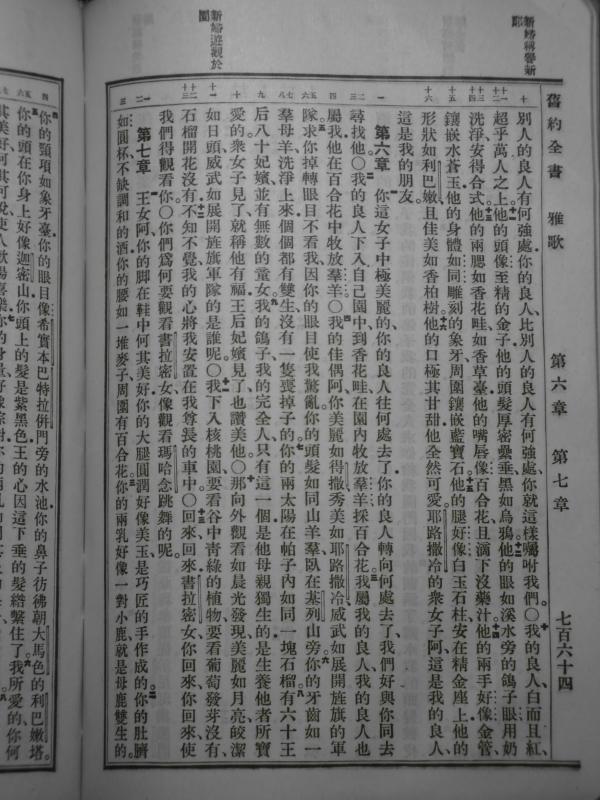 新婦稱譽新郎
新婦遊觀於園
舊約全書 雅歌 第六章 第七章 七百六十四
十 別人的良人有何強處、你的良人、比別人的良人有何強處、你就這樣囑咐我們。〇我的良人、白而且紅、
超乎萬人之上。他的頭像至精的金子、他的頭髮厚密纍垂、黑如烏鴉。他的眼如溪水旁的鴿子眼、用奶
洗淨、安得合式。他的兩腮如香花畦、如香草臺、他的嘴唇像百合花、且滴下沒藥汁。他的兩手好像金管、
鑲嵌水蒼玉、他的身體如同雕刻的象牙、周圍鑲嵌藍寶石。他的腿好像白玉石柱、安在精金座上、他的
形狀如利巴嫩、且佳美如香柏樹。他的口極其甘甜、他全然可愛、耶路撒冷的衆女子阿、這是我的良人、
這是我的朋友。
第六章 你這女子中極美麗的、你的良人往何處去了、你的良人轉向何處去了、我們好與你同去
尋找他。〇我的良人下入自己園中、到香花畦、在園內牧放羣羊、採百合花。我屬我的良人、我的良人也
屬我、他在百合花中牧放羣羊。〇我的佳偶阿、你美麗如得撒、秀美如耶路撒冷、威武如展開旌旗的軍
隊。求你掉轉眼目不看我、因你的眼目使我驚亂、你的頭髮如同山羊羣、臥在基列山旁。你的牙齒如一
羣母羊、洗淨上來、個個都有雙生、沒有一隻喪掉子的。你的兩太陽在帕子內、如同一塊石榴。有六十王
后、八十妃嬪、並有無數的童女。我的鴿子、我的完全人、只有這一個是他母親獨生的、是生養他者所寶
愛的、衆女子見了、就稱他有福、王后妃嬪見了、也讚美他。〇那向外觀看如晨光發現、美麗如月亮、皎潔
如日頭、威武如展開旌旗軍隊的是誰呢。〇我下入核桃園、要看谷中青綠的植物、要看葡萄發芽沒有、
石榴開花沒有。不知不覺、我的心將我安置在我尊長的車中。〇回來、回來、書拉密女、你回來、你回來、使
我們得觀看你。〇你們爲何要觀看書拉密女、像觀看瑪哈念跳舞的呢。
第七章 王女阿、你的脚在鞋中何其美好、你的大腿圓潤、好像美玉、是巧匠的手作成的。你的肚臍
如圓杯、不缺調和的酒、你的腰如一堆麥子、周圍有百合花。你的兩乳、好像一對小鹿、就是母鹿雙生的。
你的頸項如象牙臺、你的眼目像希實本、巴特拉併門旁的水池、你的鼻子彷彿朝大馬色的利巴嫩塔。
你的頭在你身上好像迦密山、你頭上的髮是紫黑色、王的心因這下垂的髮綹繫住了。我所愛的、你何